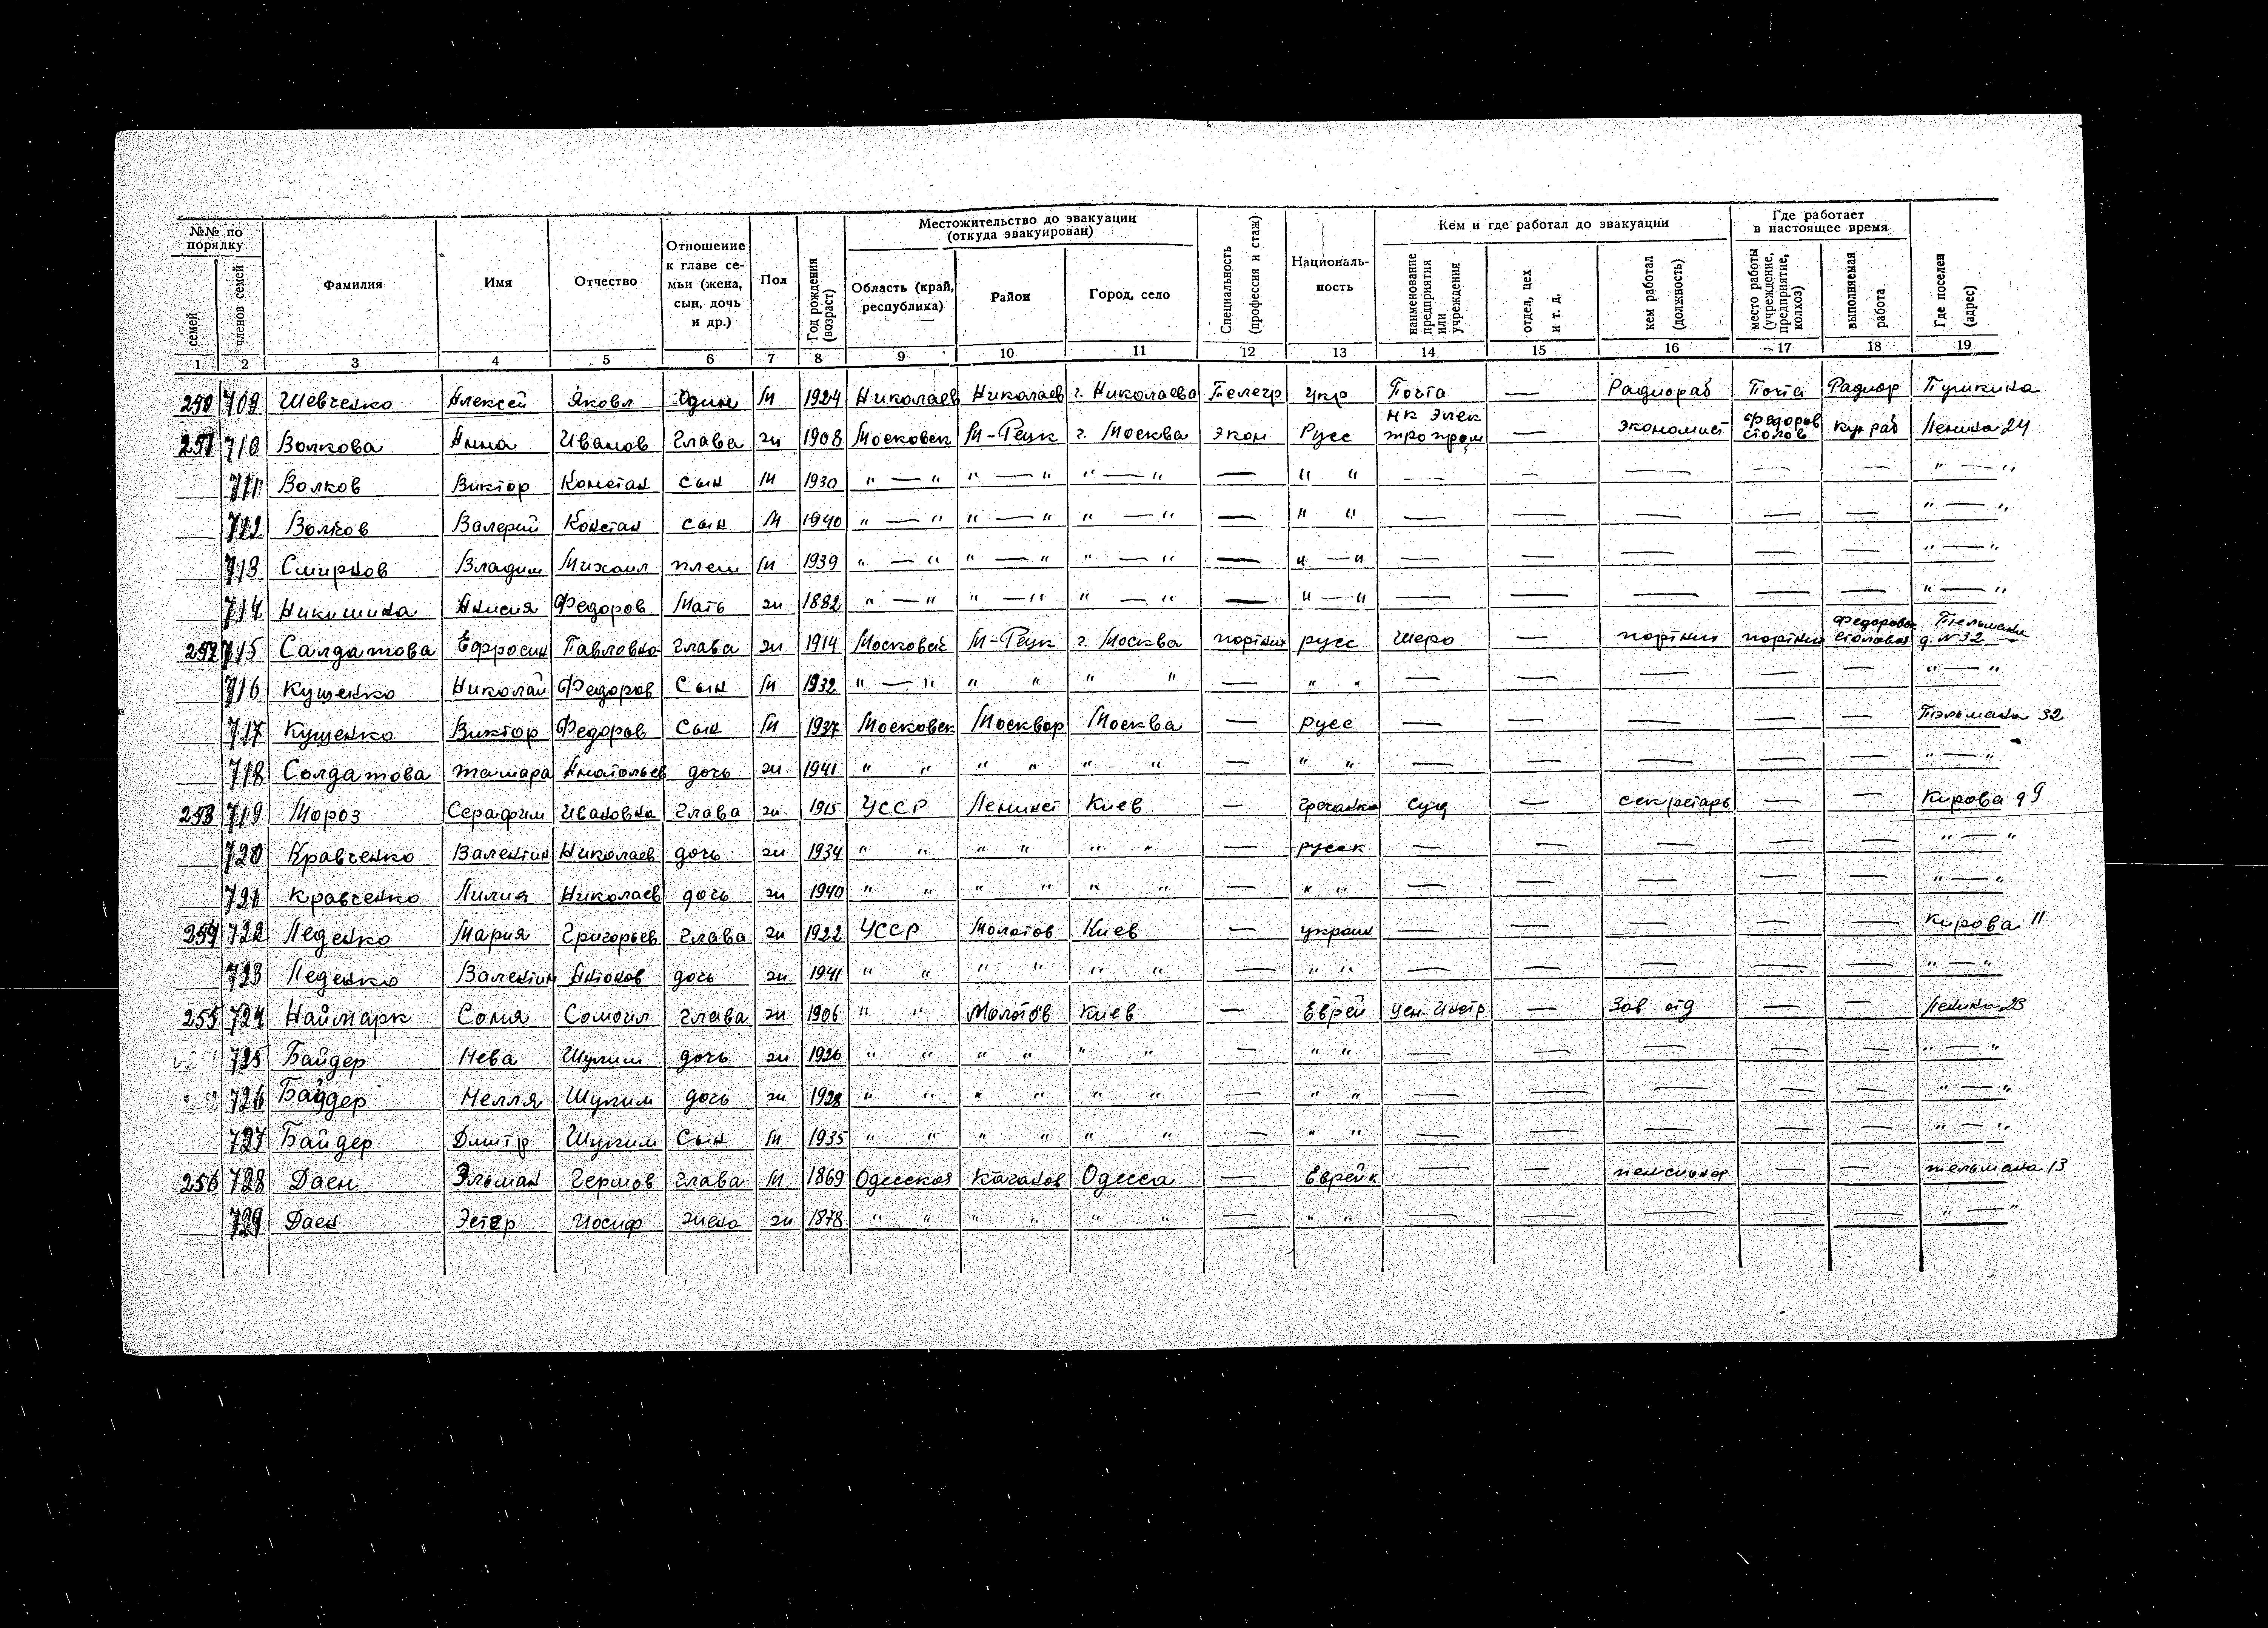 №№ по порядку
семей
членов семей
Фамилия
Имя
Отчество
Отношение к главе семьи (жена, сын, дочь и др.)
Пол
Год рождения (возраст)
Местожительство до эвакуации (откуда эвакуирован)
Область (край, республика)
Район
Город, село
Специальность (профессия и стаж)
Националь-ность
Кем и где работал до эвакуации
наименование предприятия или учреждения
отдел, цех и т. д.
кем работал (должность)
Где работает в настоящее время
место работы (учреждение, предприятие, колхоз)
выполняемая работа
Где поселен (адрес)
1 2 3 4 5 6 7 8 9 10 11 12 13 14 15 16 17 18 19
250 709 Шевченко Алексей Яковл Один М 1924 Николаев Николаев г. Николаева Телегр Укр Почта — Радиораб Почта Радиор Пушкина
251 710 Волкова Анна Иванов Глава ж 1908 Московск г. Москва экон Русс НК Элек тропром — экономист Федоров столов кух раб Ленина 24
711 Волков Виктор Констан сын М 1930 " — " " — " " — " — " " — — — — — " — "
712 Волков Валерий Констан сын М 1940 " — " " — " " — " — " " — — — — — " — "
713 Смирнов Владим Михаил плем М 1939 " — " " — " " — " — " — " — — — — — " — "
714 Никишина Анисия Федоров Мать ж 1882 " — " " — " " — " — " — " — — — — — " — "
252 715 Салдатова Ефросин Павловна глава ж 1914 Московск г. Москва портних русс — портних портних Федоровск столовая Тельмана д. N 32
716 Кущенко Николай Федоров Сын М 1932 " — " " " " " — " " — — — — — " — "
717 Кущенко Виктор Федоров Сын М 1937 Московск Москвор Москва — русс — — — — — Тэльмана 32
718 Солдатова тамара Анатольев дочь ж 1941 " " " " " " — " " — — — — — " — "
253 719 Мороз Серафим Ивановна Глава ж 1915 УССР Ленинст Киев — гречанка Суд — секретарь — — Кирова д 9
720 Кравченко Валентин Николаев дочь ж 1934 " " " " " " — русск — — — — — " — "
721 Кравченко Лилия Николаев дочь ж 1940 " " " " " " — " " — — — — — " — "
254 722 Леденко Мария Григорьев Глава ж 1922 УССР Молотов Киев — украин — — — — — Кирова 11
723 Леденко Валентин Антонов дочь ж 1941 " " " " " " — " " — — — — — " — "
255 724 Наймарк Соня Сомоил Глава ж 1906 " " Молотов Киев — Еврей — Зав отд — — Ленина 23
725 Байдер Нева Шулим дочь ж 1926 " " " " " " — " " — — — — — " — "
726 Байдер Нелля Шулим дочь ж 1928 " " " " " " — " " — — — — — " — "
727 Байдер Дмитр Шулим Сын М 1935 " " " " " " — " " — — — — — " — "
256 728 Даен Эльман Гершов глава М 1869 Одесская Каганов Одесса — Еврейк — — пенсионер — — тельмана 13
729 Даен Эстер Иосиф жена ж 1878 " " " " " " — " " — — — — — " — "